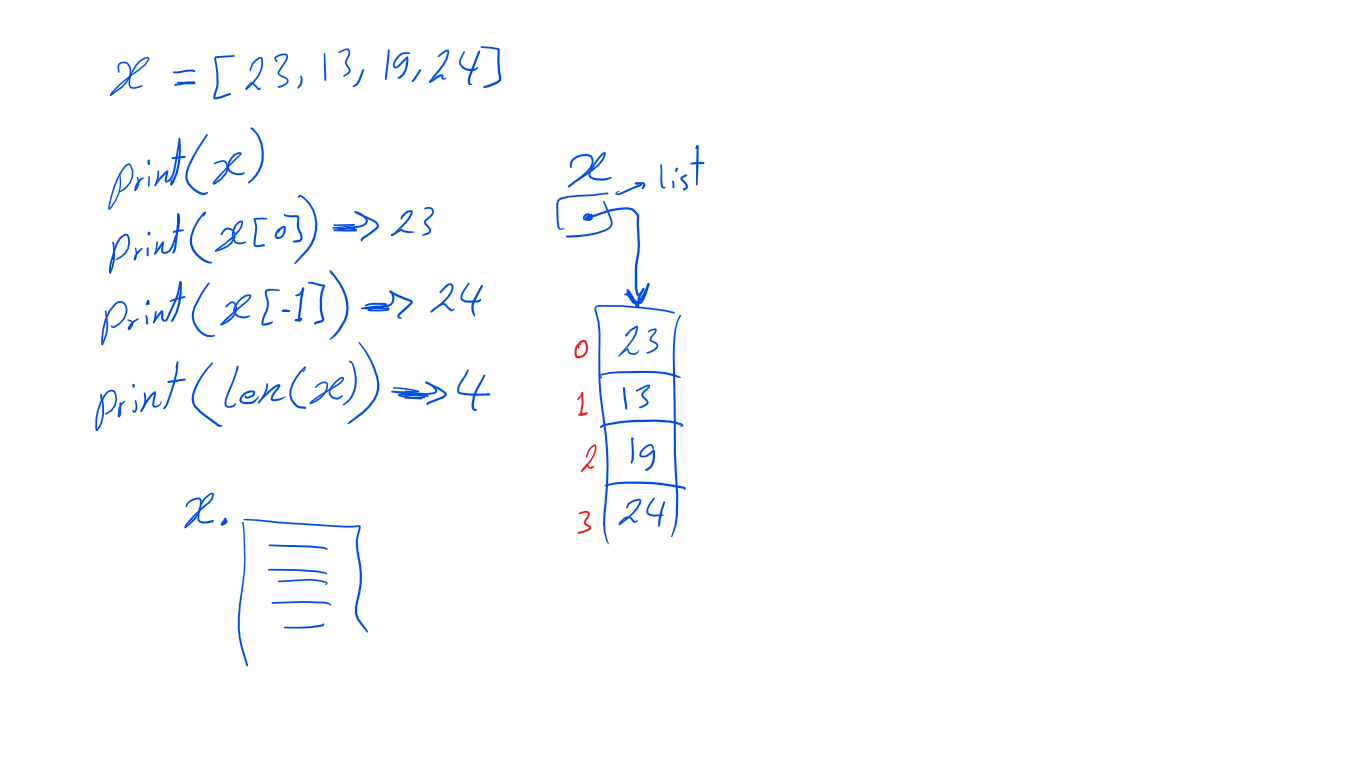 x = [23, 13, 19, 24]
print(x)
print(x[0]) => 23
print(x[-1]) => 24
print(len(x)) => 4
x.
x → list
0 23
1 13
2 19
3 24